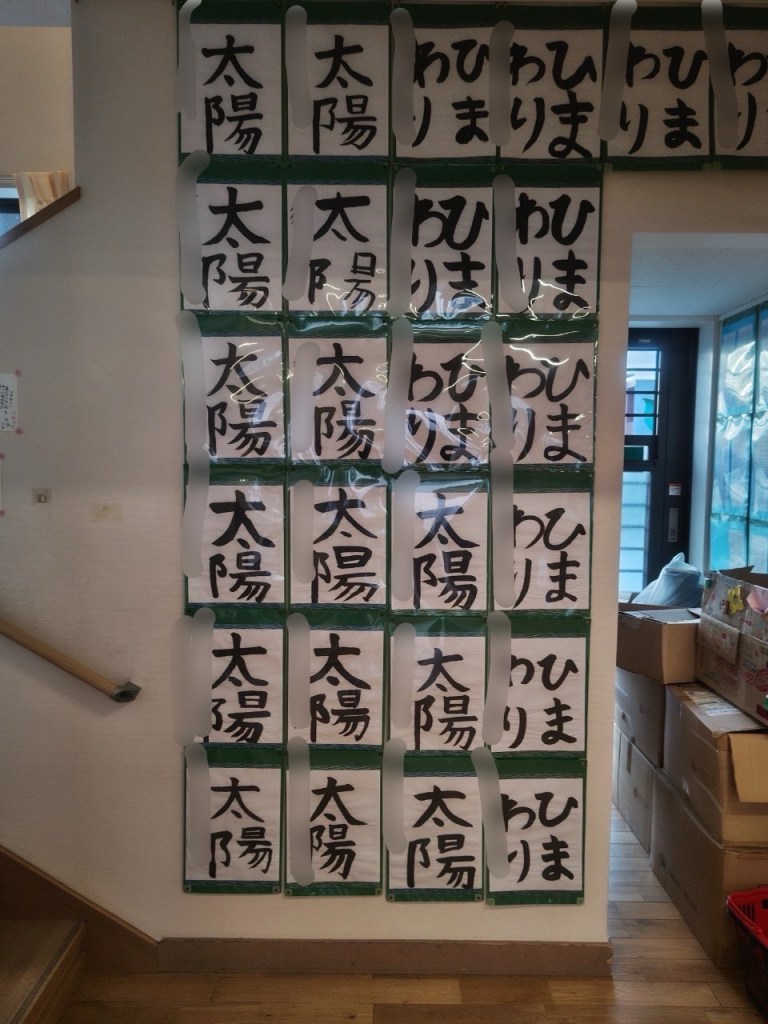 太陽
太陽
ひま
わり
ひま
わり
ひま
わり
わり
太陽
太陽
ひま
わり
ひま
わり
太陽
太陽
ひま
わり
ひま
わり
太陽
太陽
太陽
ひま
わり
太陽
太陽
太陽
ひま
わり
太陽
太陽
太陽
ひま
わり